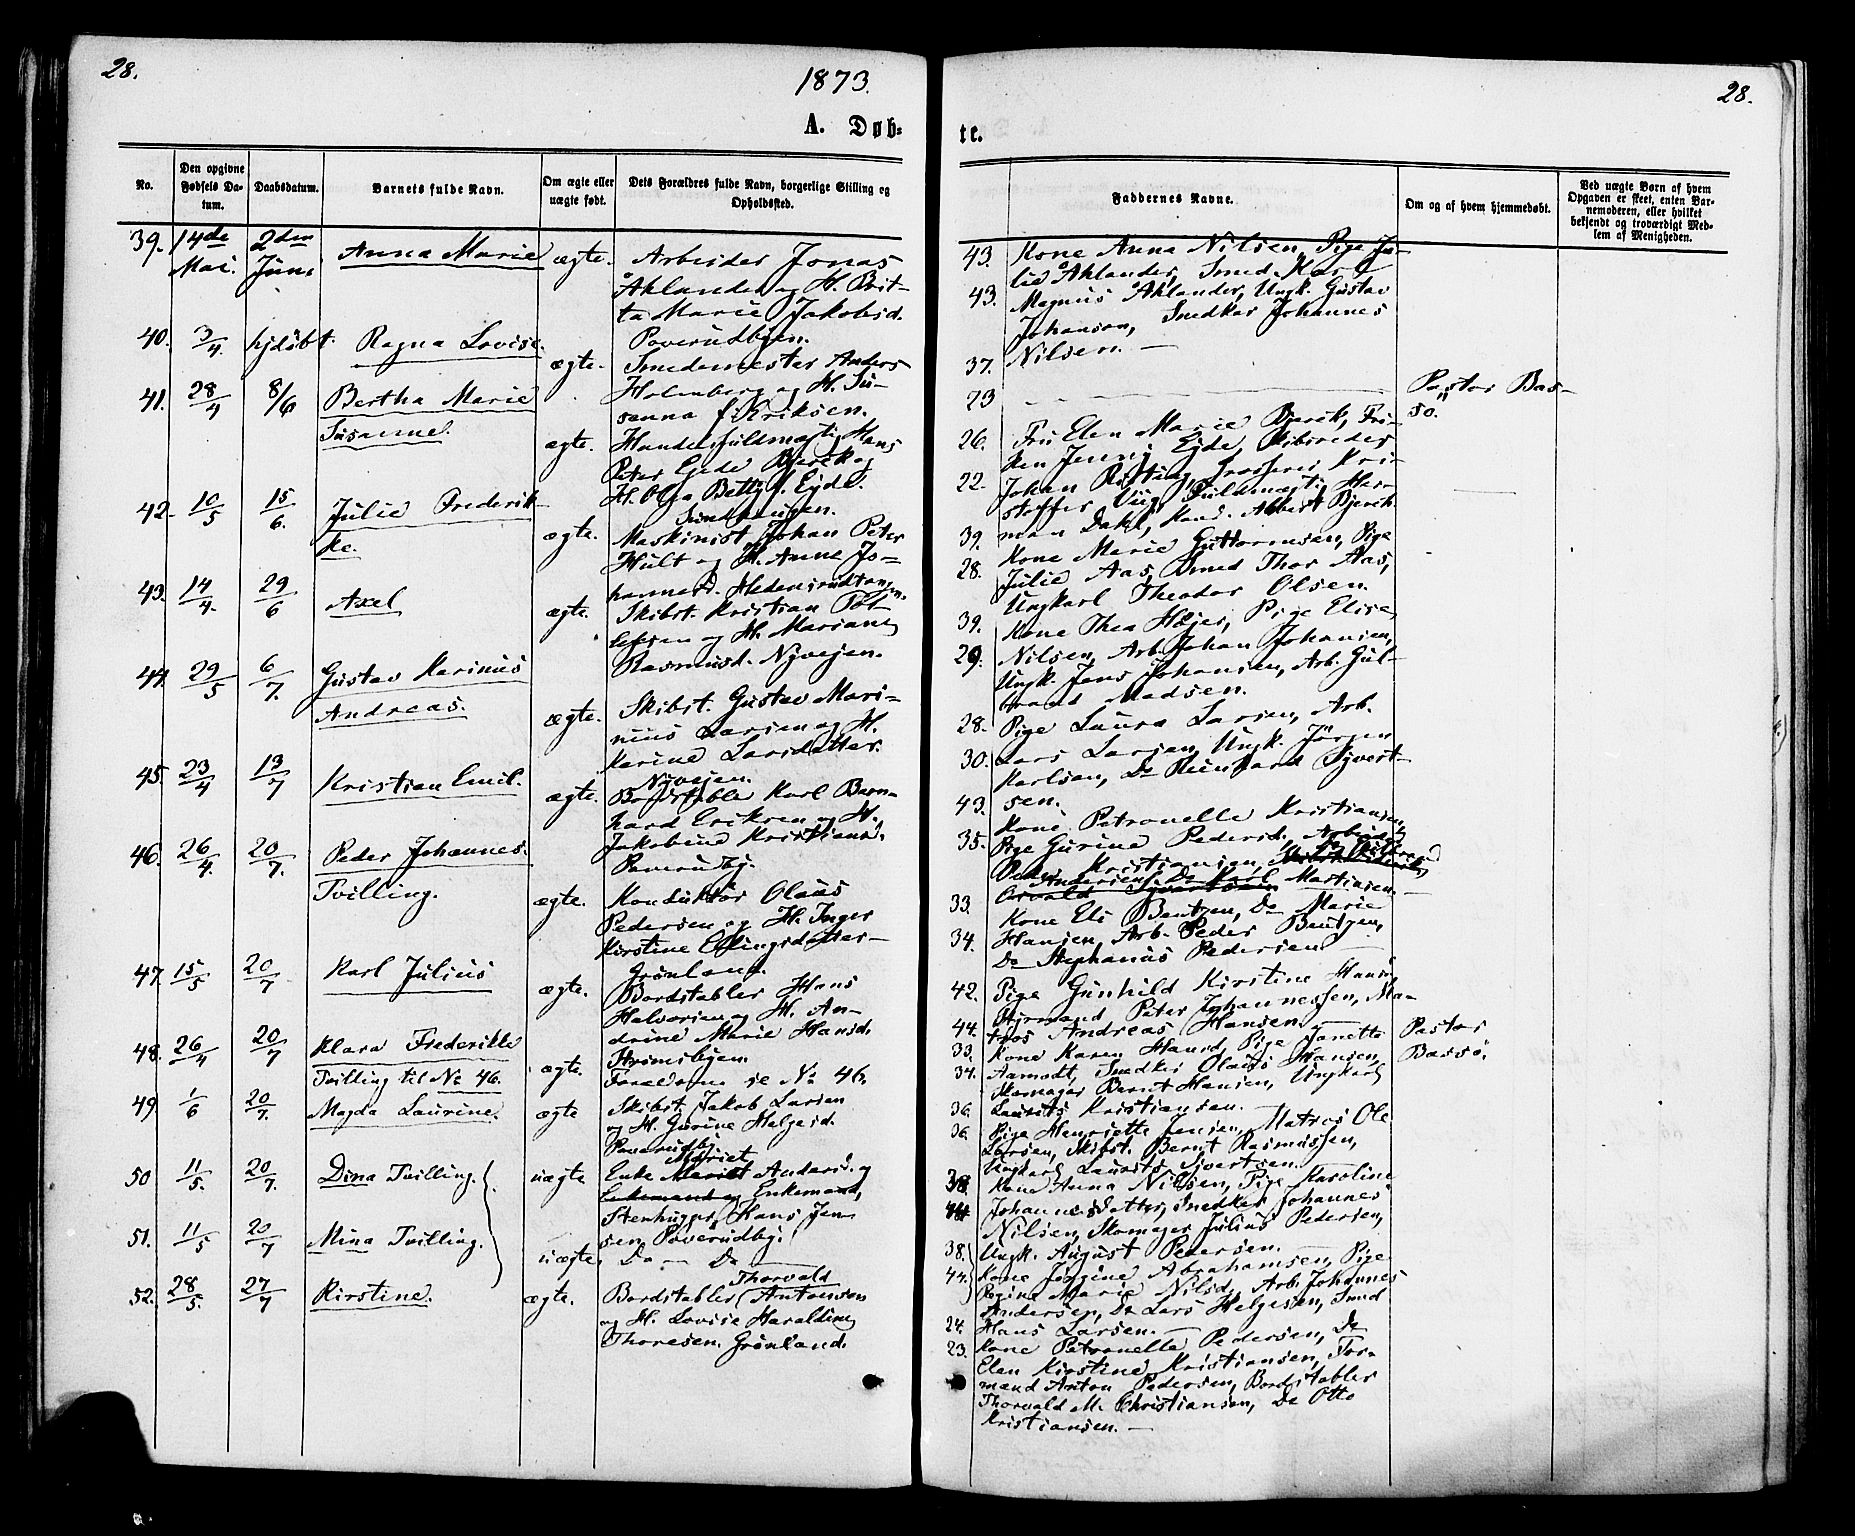 28.
1873.
A. Døb=
No.
Den opgivne Fødsels Da-
tum.
Daabsdatum.
Barnets fulde Navn.
Om ægte eller
uægte født.
Dets Forældres fulde Navn, borgerlige Stilling og
Opholdssted.
39. 14de 2den Anna Marie ægte. Arbeider Jonas
Mai. Juni Åhlander og H. Brit-
ta Marie Jakobsd.
40. 3/4. hjdøbt. Ragna Lovise. Poverudbyen.
ægte. Smedemester Anders
41. 28/4 8/6 Bertha Marie Holmberg og H. Su-
sanna f. Eriksen.
Susanne. ægte. Handelsfuldmægtig Hans
Peter Gjede Bjerck og
H. Olga Betty f. Eyde.
42. 10/5 15/6. Julie Frederik-
ke. ægte. Maskinist Johan Peter
Hult og H. Anna Jo-
hannesd.
43. 14/4. 29/6 Axel ægte. Skibst. Kristian
og H. Mariane
Rasmusd. Nyvejen.
44. 29/5 6/7. Gustav Marinus
Andreas. ægte. Skibst. Gustav Mari-
nius Larsen og H.
Karine Larsdatter.
Nyvejen.
45. 23/4 13/7 Kristian Emil. ægte. Bordstabler Karl Bern-
hard Eriksen og H.
Jakobine Kristiansd.
Poverudbj.
46. 26/4. 20/7. Peder Johannes.
Tvilling. ægte. Konduktør Olaus
Pedersen og H. Inger
Kirstine Ellingsdatter
Grønland.
47. 15/5 20/7 Karl Julius ægte. Bordstabler Hans
Halvorsen og H. An-
drine Marie Hansd.
Strømsbyen
48. 26/4 20/7 Klara Frederikke
Tvilling til No 46. ægte. Forældrene se No 46.
49. 1/6 20/7. Magda Laurine. ægte Skibst. Jakob Larsen
og H. Gurine Helgesd.
Poverudbj.
Mariet
50 11/5. 20/7. Dina Tvilling. uægte Enke Anders. og
Enkemand,
Stenhugger Hans Jen-
51. 11/5 20/7 Mina Tvilling. sen, Poverudbj.
uægte. Do — Do —
Thorvald
52. 28/5. 27/7 Kirstine. ægte. Bordstabler Antonsen
og H. Lovise Haraldine
Thoresen. Grønland.
28.
te.
Faddernes Navne.
Om og af hvem hjemmedøbt.
Ved uægte Børn af hvem
Opgaven er skeet, enten Bar-
nemoderen, eller hvilket
bekjendt og troværdigt Med-
lem af Menigheden.
43. Kone Anna Nilsen, Pige Ju-
lie Åhlander, Smed Karl
43. Magnus Åhlander, Ungk. Gustav
Johanson, Snedker Johannes
37. Nilsen. —
23 Pastor Bas-
sø.
26. Fru Elen Marie Bjerck, Frø-
ken Jenny Eyde, Skibsreder
22. Johan Grosserer Kri-
stoffer Fuldmægtig Her-
39. man Dahl, Kand. Albert Bjerck
28. Kone Marie Guttormsen, Pige
Julie Aas, Smed Thor Aas,
Ungkarl Theodor Olsen.
39. Kone Thea Højer, Pige Elise
29. Nilsen, Arb. Johan Johansen,
Ungk. Jens Johansen, Arb. Gul-
brand Madsen.
28. Pige Laura Larsen, Arb.
30. Lars Larsen, Ungk. Jørgen
Karlsen, Do Reinhard Syvert-
43. sen.
Kone Petronelle Kristiansen,
35. Pige Gurine Pedersd., Arbeider
Peder Kristiansen,
Andersen, Do Karl Martinsen. —
33. Kone Eli Bentzen, Do Marie
34. Hansen, Arb. Peder Bentzen,
Do Stephanus Pedersen —
42. Pige Gunhild Kirstine Hansen
Styrmand Peter Johannessen, Ma-
44. tros Andreas Hansen. — Pastor
33. Kone Karen Hansd, Pige Janette Bassø.
34. Aamodt, Snedker Olaus Hansen,
Skomager Bernt Hansen, Ungkarl
36. Laurits Kristiansen. —
36. Pige Henriette Jensen, Matros Ole
Larsen, Skibst. Bernt Rasmussen,
Ungkarl Laurits Syvertsen. —
38. Kone Anna Nilsen, Pige Karoline
44. Johannesdatter, Snedker Johannes
Nilsen, Skomager Julius Pedersen,
38. Ungk. August Petersen. —
44. Kone Jørgine Abrahamsen, Pige
Regine Marie Nilsd, Arb. Johannes
Andersen, Do Lars Helgesen, Smed
24. Hans Larsen. —
23. Kone Petronelle Pedersen, Do
Elen Kirstine Kristiansen, For-
mand Anton Pedersen, Bordstabler
Thorvald M. Christiansen, Do Otto
Kristiansen. —